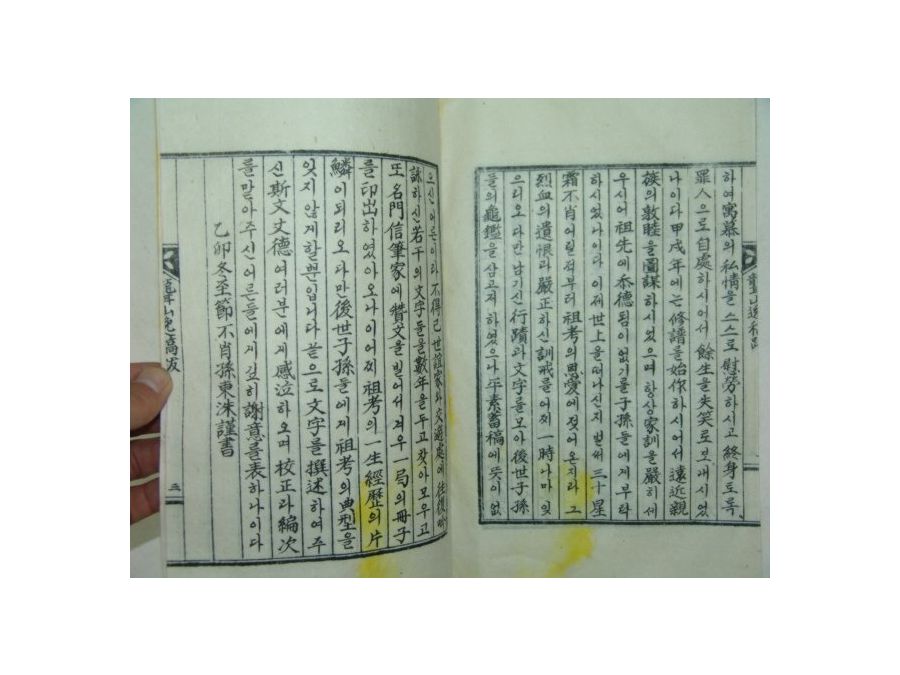 하여 寓慕의 私情을 스스로 慰勞하시고 終身토록
罪人으로 自處하시어서 餘生을 失笑로 보내시었
나이다 甲戌年에는 修譜를 始作하시어서 遠近親
族의 敦睦을 圖謀하시었으며 항상 家訓을 嚴히 세
우시어 祖先에 忝德됨이 없기를 子孫들에게 부탁
하시었나이다 이제 世上을 떠나신지 벌써 三十星
霜 不肖 어릴적부터 祖考의 恩愛에 젖어 온지라 그
烈血의 遺恨과 嚴正하신 訓戒를 어찌 一時나마 잊
으리오 다만 남기신 行蹟과 文字를 모아 後世子孫
들의 龜鑑을 삼고저 하였으나 平素 蓄稿에 뜻이 없
으신 어른이라 不得已 世誼家와 交遊處에 往復
하신 若干의 文字들을 數年을 두고 찾아 모우고
또 名門信筆家에 贊文을 빌어서 겨우 一局의 冊子
를 印出하였아오나 이 어찌 祖考의 一生 經歷의 片
鱗이 되리오 다만 後世子孫들에게 祖考의 典型을
잊지 않게 할 뿐입니다 끝으로 文字를 撰述하여 주
신 斯文丈德 여러분에게 感泣하오며 校正과 編次
를 맡아 주신 어른들에게 깊히 謝意를 表하나이다
乙卯 冬至節 不肖孫 東洙 謹書
三